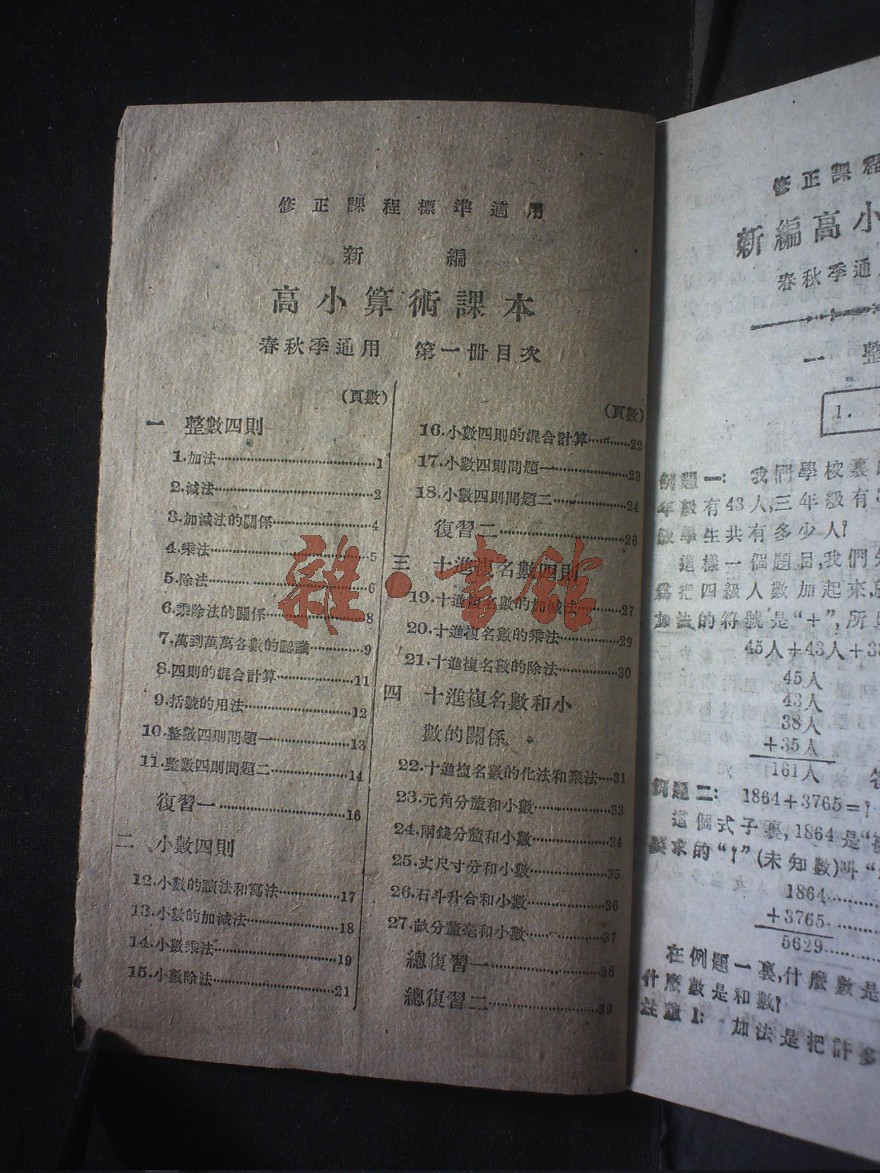 修正課程標準適用
新編
高小算術課本
春秋季通用 第一册目次
(頁數)
一 整數四則
1.加法……1
2.減法……2
3.加減法的關係……4
4.乘法……5
5.除法……6
6.乘除法的關係……8
7.萬到萬萬各數的認識……9
8.四則的混合計算……11
9.括號的用法……12
10.整數四則問題一……13
11.整數四則問題二……14
復習一……16
二 小數四則
12.小數的讀法和寫法……17
13.小數的加減法……18
14.小數乘法……19
15.小數除法……21
(頁數)
16.小數四則的混合計算……22
17.小數四則問題一……23
18.小數四則問題二……24
復習二……26
三 十進複名數四則
19.十進複名數的加減法……27
20.十進複名數的乘法……29
21.十進複名數的除法……30
四 十進複名數和小
數的關係
22.十進複名數的化法和聚法……31
23.元角分釐和小數……33
24.兩錢分釐和小數……34
25.丈尺寸分和小數……35
26.石斗升合和小數……36
27.畝分釐毫和小數……37
總復習一……38
總復習二……39
雜·書館
修正課程
新編高小
春秋季通
一 整
1.
例題一: 我們學校裏
年級有43人,三年級有
級學生共有多少人?
這樣一個題目,我們
爲把四級人數加起來,
加法的符號是“+”,所
45人+43人+38
45人
43人
38人
+35人
161人 答
例題二: 1864+3765=?
這個式子裏,1864是“被
要求的“?”(未知數)叫“
1864……
+3765……
5629……
在例題一裏,什麼數是
什麼數是和數?
註意1: 加法是把許多